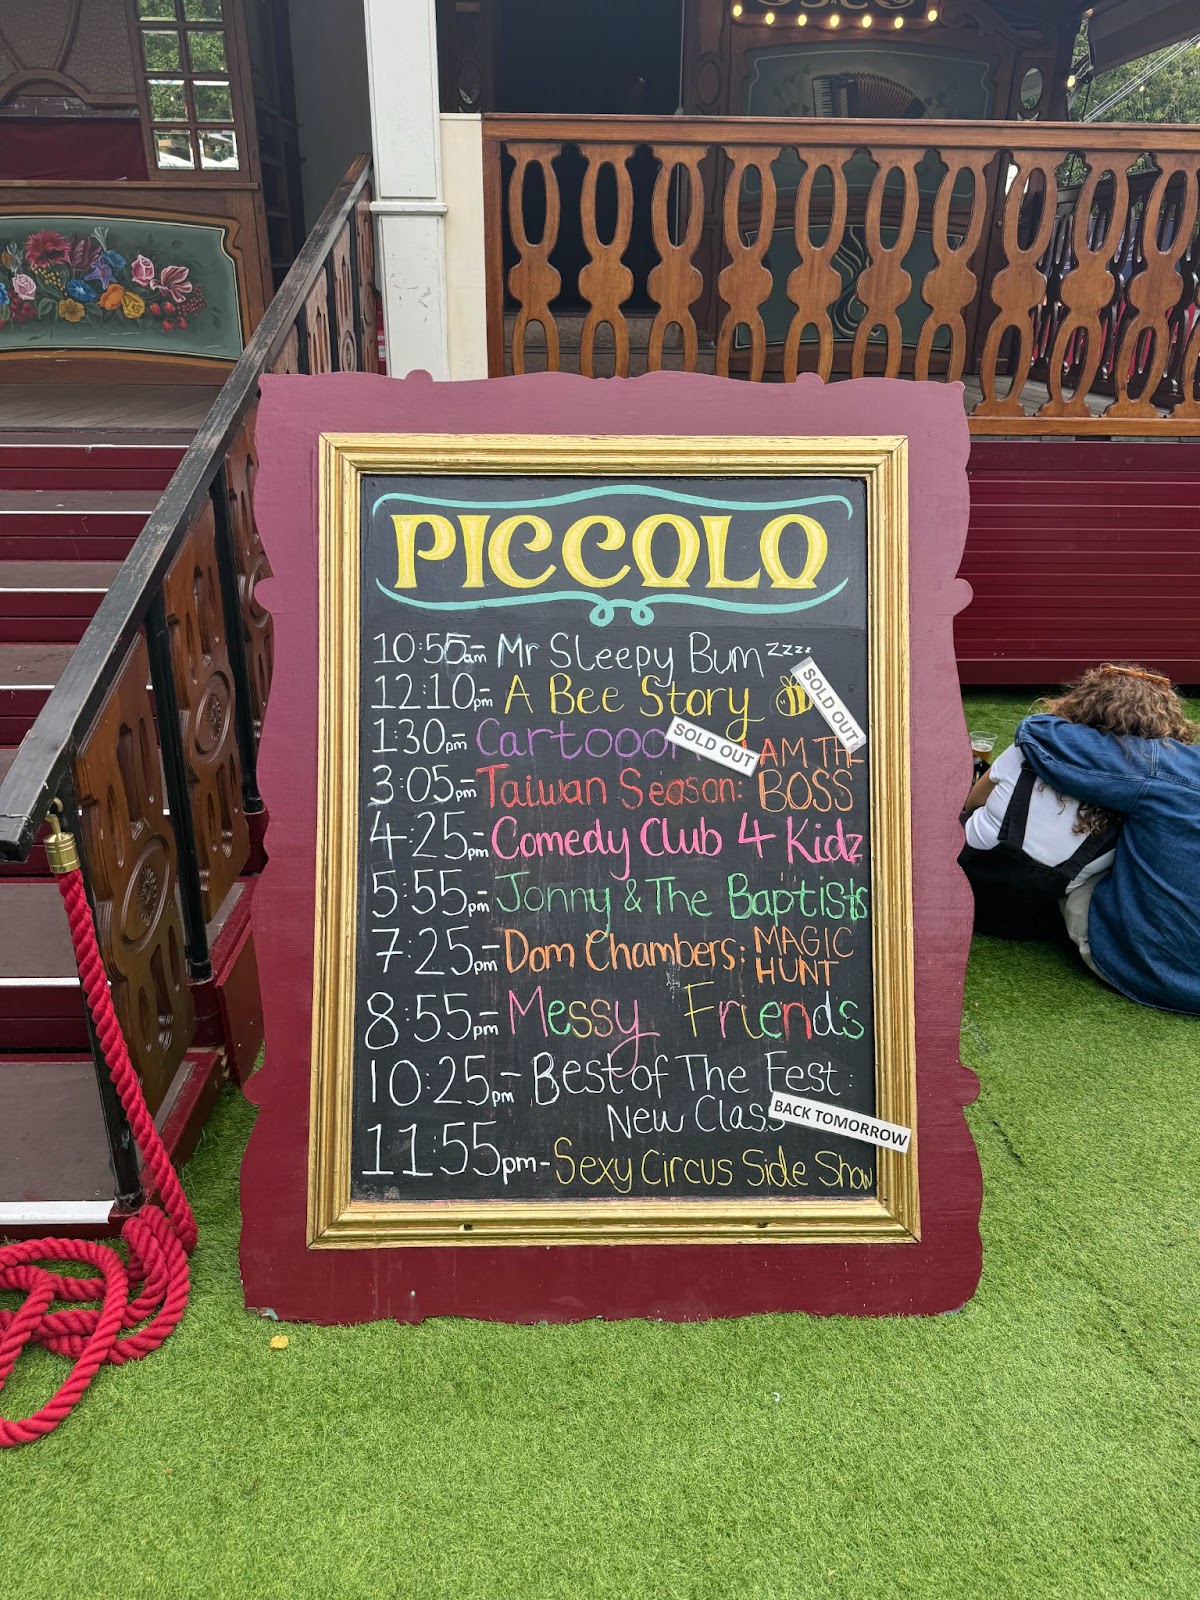 PICCOLO
10:55am- Mr Sleepy Bum zzzz
12:10pm- A Bee Story SOLD OUT!
1:30pm- SOLD OUT
3:05pm- Taiwan Season: I AM THE BOSS
4:25pm- Comedy Club 4 Kidz
5:55pm- Jonny & The Baptists
7:25pm- Dom Chambers: MAGIC HUNT
8:55pm- Messy Friends
10:25pm- Best of The Fest:
New Class BACK TOMORROW
11:55pm- Sexy Circus Side Show